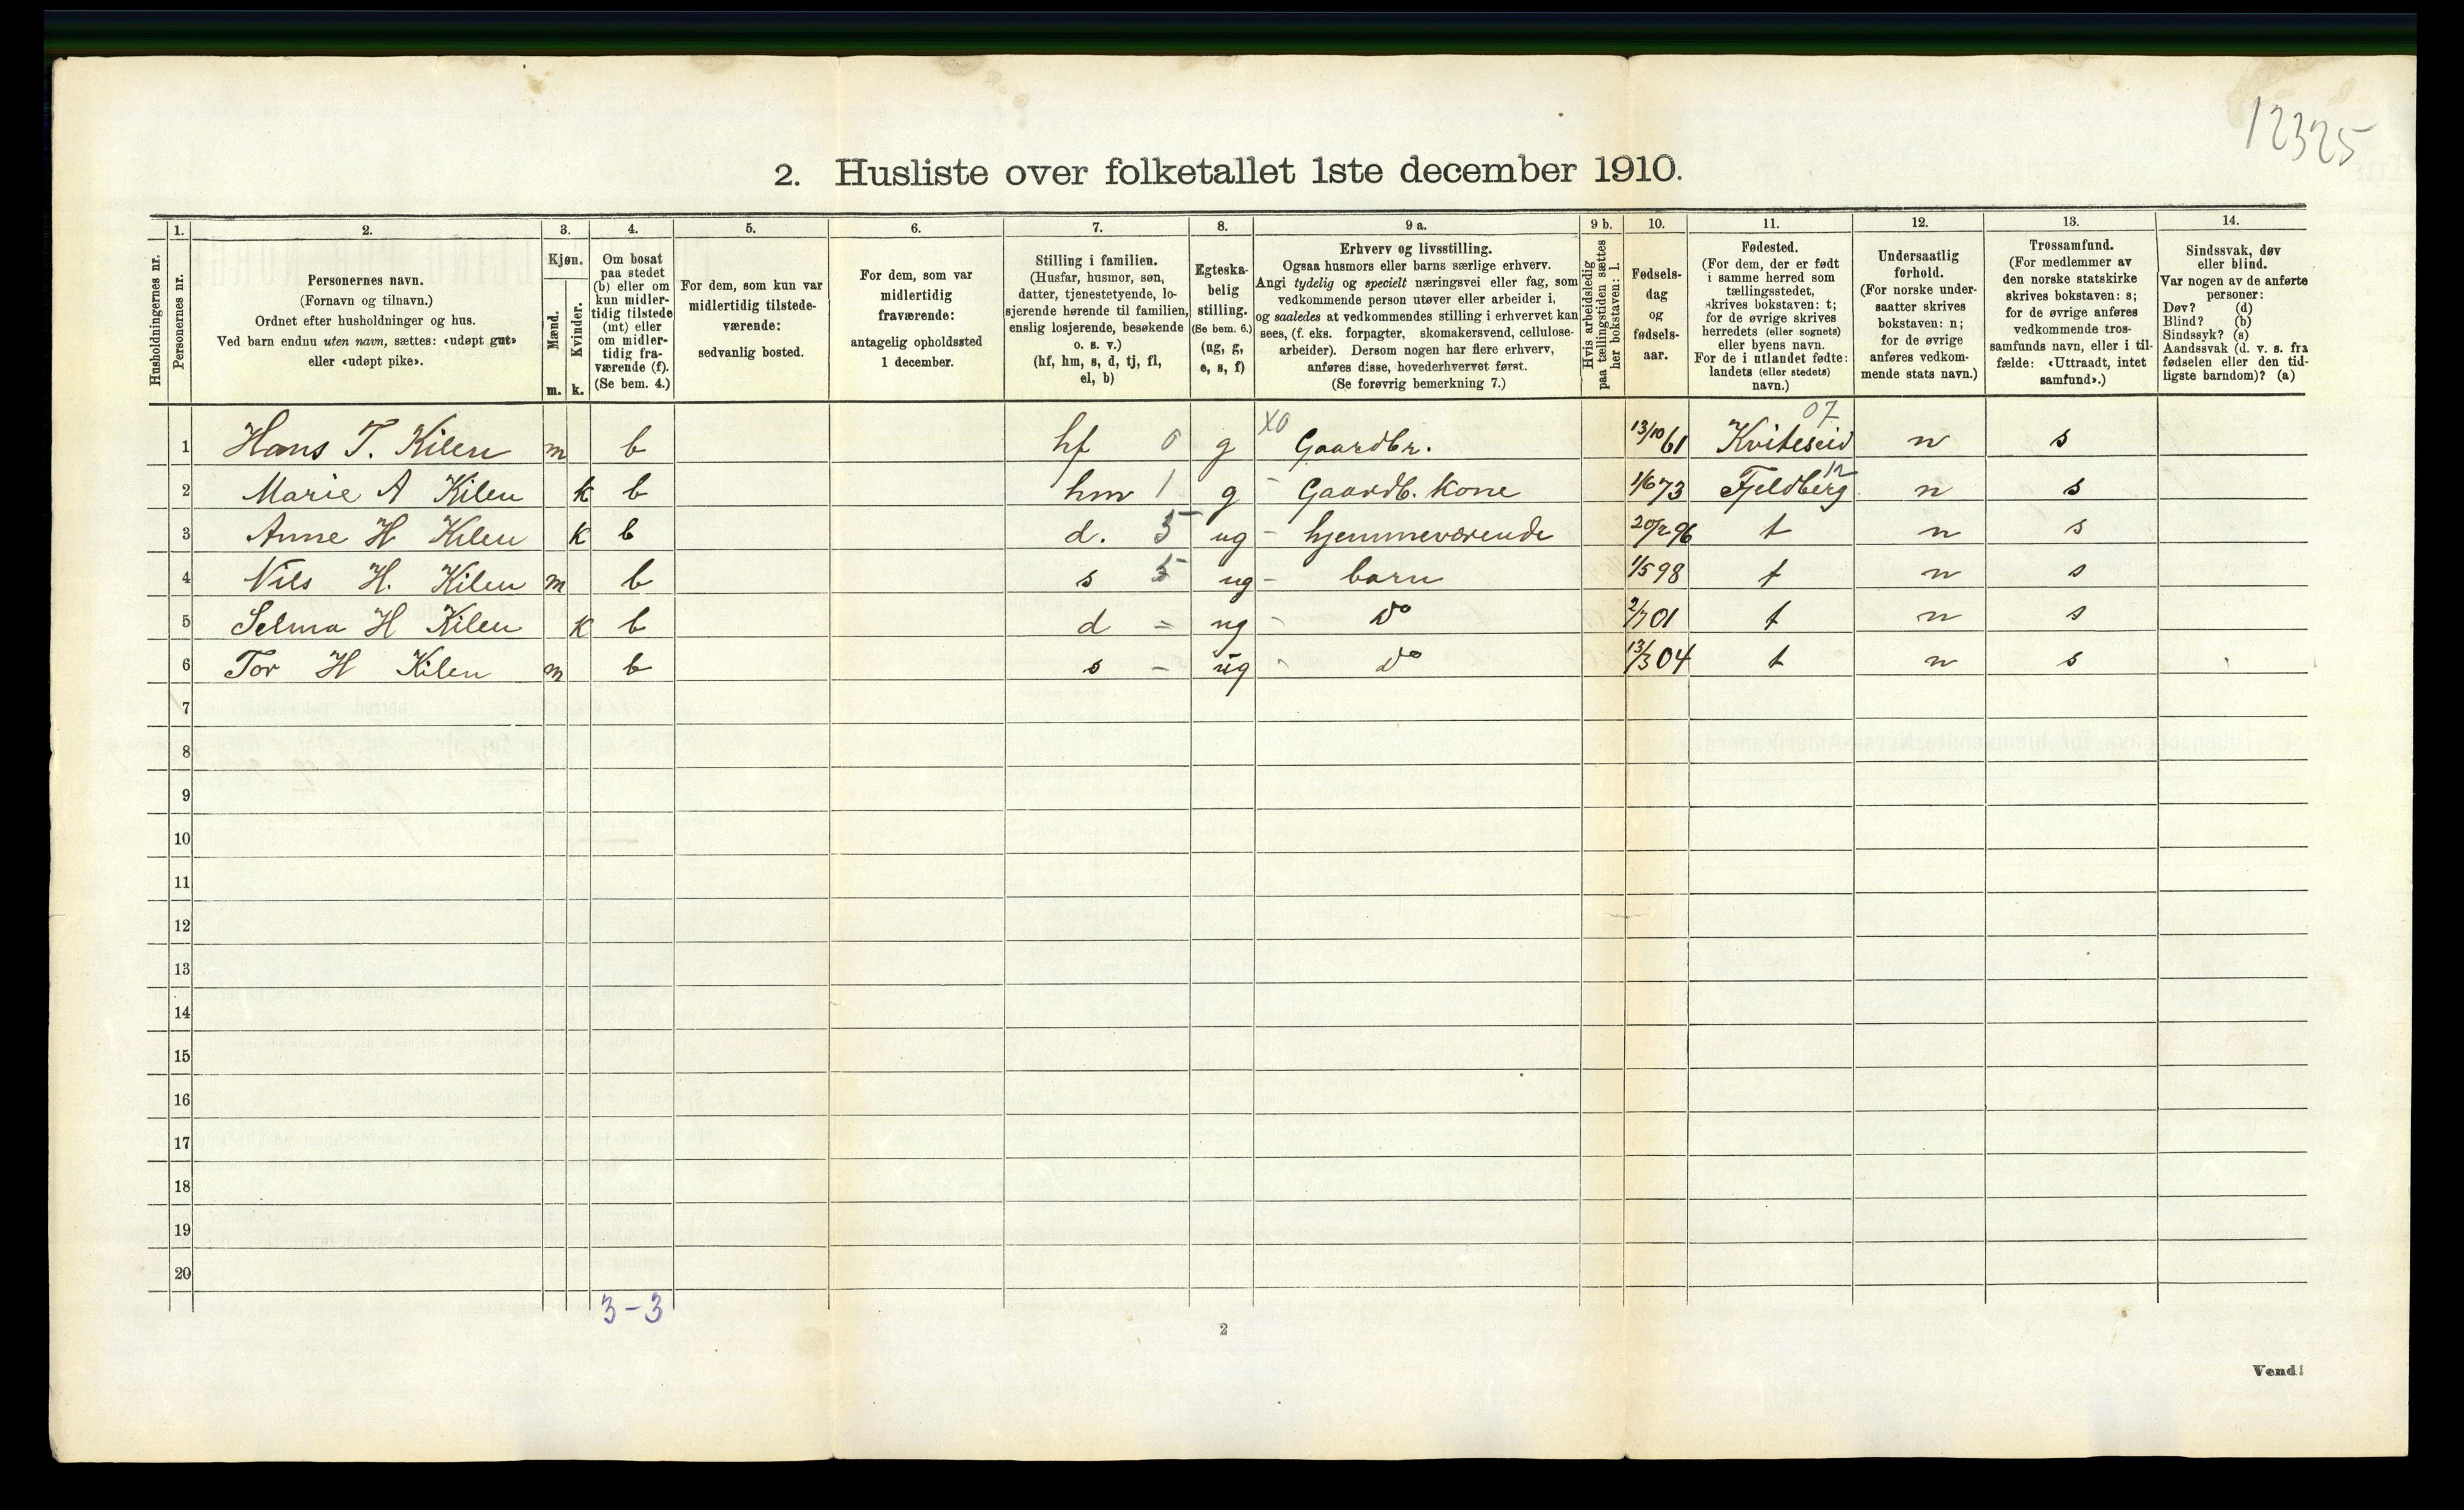 12325
2. Husliste over folketallet 1ste december 1910.
1. 2. 3. 4. 5. 6. 7. 8. 9 a. 9 b. 10. 11. 12. 13. 14.
Husholdningernes nr.
Personernes nr.
Personernes navn.
(Fornavn og tilnavn.)
Ordnet efter husholdninger og hus.
Ved barn endnu uten navn, sættes: «udøpt gut»
eller «udøpt pike».
Kjøn.
Mænd.
Kvinder.
m. k.
Om bosat
paa stedet
(b) eller om
kun midler-
tidig tilstede
(mt) eller
om midler-
tidig fra-
værende (f).
(Se bem. 4.)
For dem, som kun var
midlertidig tilstede-
værende:
sedvanlig bosted.
For dem, som var
midlertidig
fraværende:
antagelig opholdssted
1 december.
Stilling i familien.
(Husfar, husmor, søn,
datter, tjenestetyende, lo-
sjerende hørende til familien,
enslig losjerende, besøkende
o. s. v.)
(hf, hm, s, d, tj, fl,
el, b)
Egteska-
belig
stilling.
(Se bem. 6.)
(ug, g,
e, s, f)
Erhverv og livsstilling.
Ogsaa husmors eller barns særlige erhverv.
Angi tydelig og specielt næringsvei eller fag, som
vedkommende person utøver eller arbeider i,
og saaledes at vedkommendes stilling i erhvervet kan
sees, (f. eks. forpagter, skomakersvend, cellulose-
arbeider). Dersom nogen har flere erhverv,
anføres disse, hovederhvervet først.
(Se forøvrig bemerkning 7.)
Hvis arbeidsledig
paa tællingstiden sættes
her bokstaven: l.
Fødsels-
dag
og
fødsels-
aar.
Fødested.
(For dem, der er født
i samme herred som
tællingsstedet,
skrives bokstaven: t;
for de øvrige skrives
herredets (eller sognets)
eller byens navn.
For de i utlandet fødte:
landets (eller stedets)
navn.)
Undersaatlig
forhold.
(For norske under-
saatter skrives
bokstaven: n;
for de øvrige
anføres vedkom-
mende stats navn.)
Trossamfund.
(For medlemmer av
den norske statskirke
skrives bokstaven: s;
for de øvrige anføres
vedkommende tros-
samfunds navn, eller i til-
fælde: «Uttraadt, intet
samfund».)
Sindssvak, døv
eller blind.
Var nogen av de anførte
personer:
Døv? (d)
Blind? (b)
Sindssyk? (s)
Aandssvak (d. v. s. fra
fødselen eller den tid-
ligste barndom)? (a)
X0 07
1 Hans T. Kilen m b hf 0 g Gaardbr. 13/10 61 Kviteseid n s
12
2 Marie A Kilen k b hm 1 g - Gaardb. Kone 1/6 73 Fjeldberg n s
3 Anne H Kilen k b d. 5 ug - hjemmeværende 20/2 96 t n s
4 Nils H. Kilen m b s 5 ug - barn 1/5 98 t n s
5 Selma H Kilen k b d - ug - Do 2/7 01 t n s
6 Tor H Kilen m b s - ug - Do 13/3 04 t n s
7
8
9
10
11
12
13
14
15
16
17
18
19
20
3-3
2
Vend!